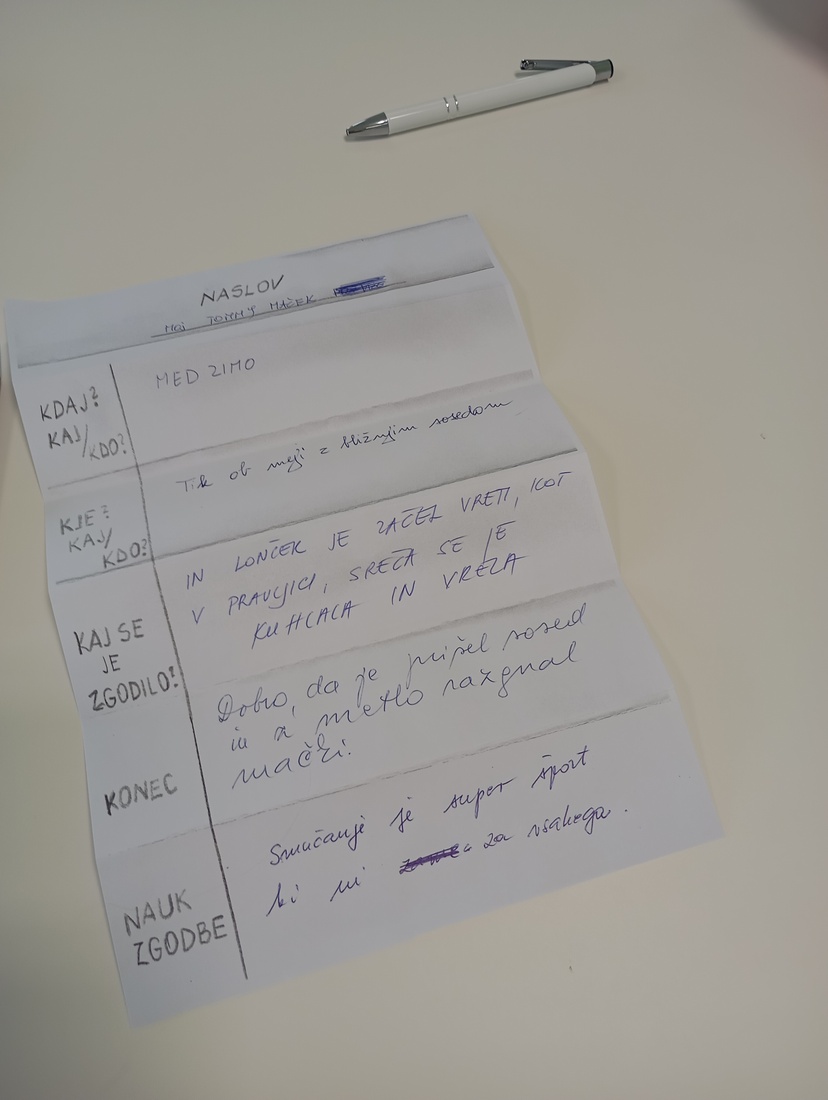 NASLOV
MOJ TOMMY MAČEK
KDAJ?
KAJ/
KDO?
MED ZIMO
KJE?
KAJ/
KDO?
Tik ob meji z bližnjim sosedom
KAJ SE
JE
ZGODILO?
IN LONČEK JE ZAČEL VRETI, KOT
V PRAVLJICI, SREČA SE JE
KUHLALA IN VRELA
KONEC
Dobro, da je prišel sosed
in z metlo razgnal
mački.
NAUK
ZGODBE
Smučanje je super šport
ki ni za vsakega.